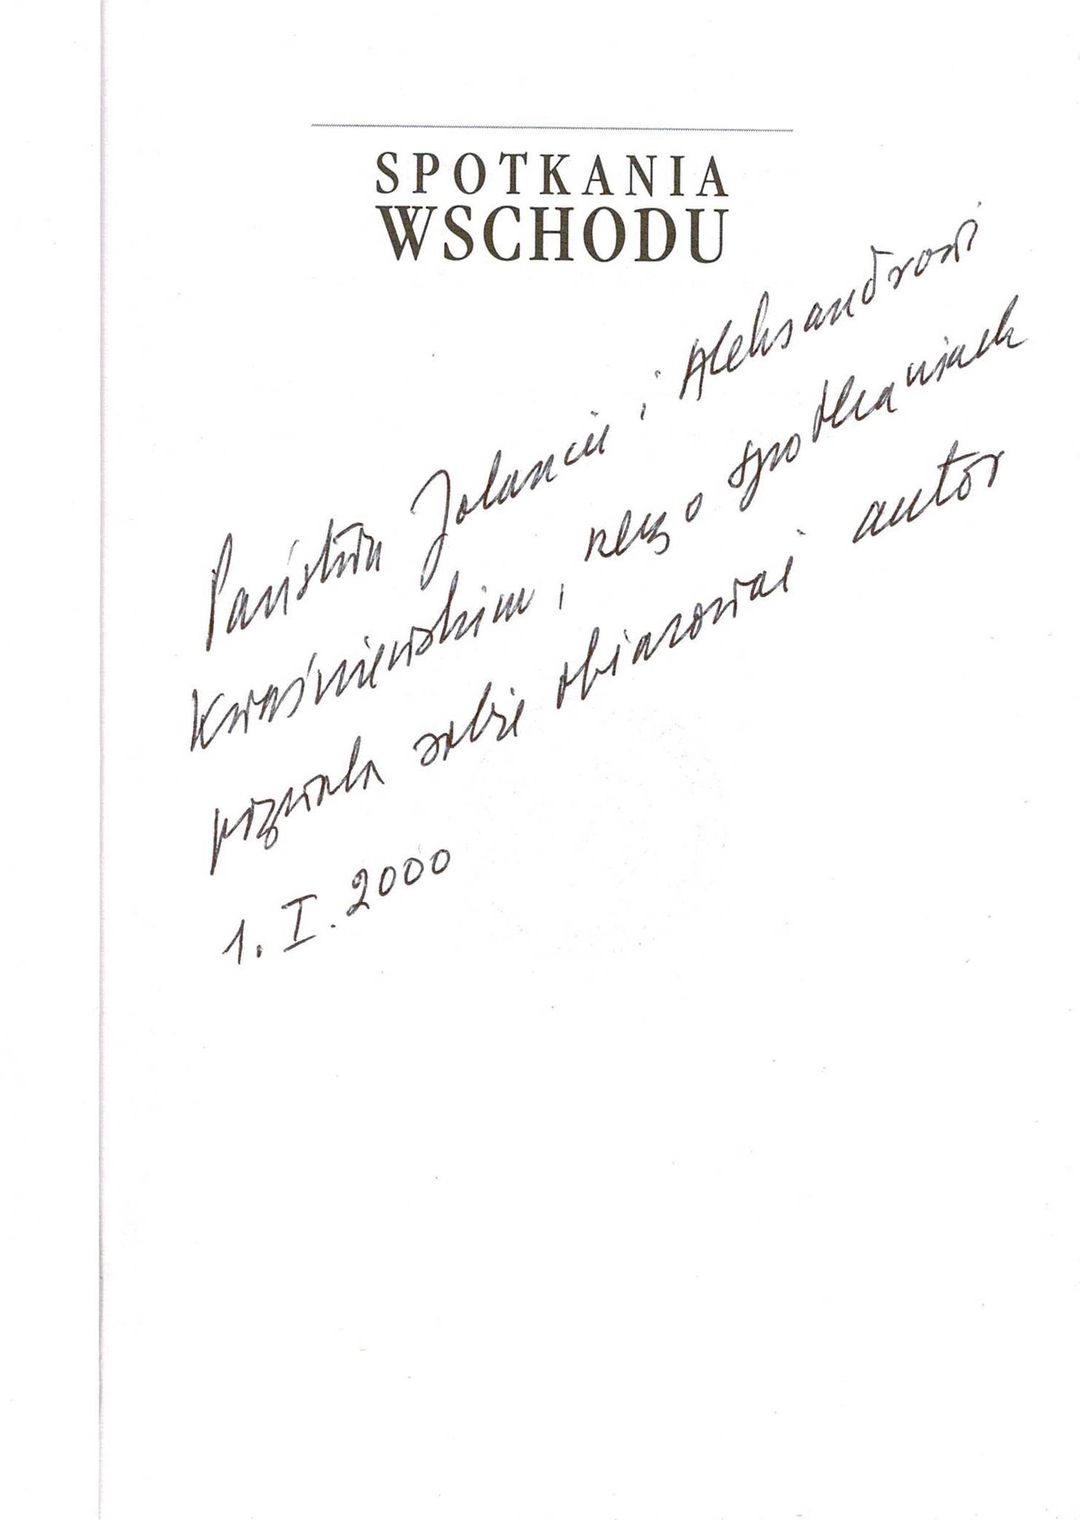 SPOTKANIA
WSCHODU
Państwu Jolancie i Aleksandrowi
Kwaśniewskim, rzecz o spotkaniach
pozwala sobie ofiarować autor
1. I. 2000